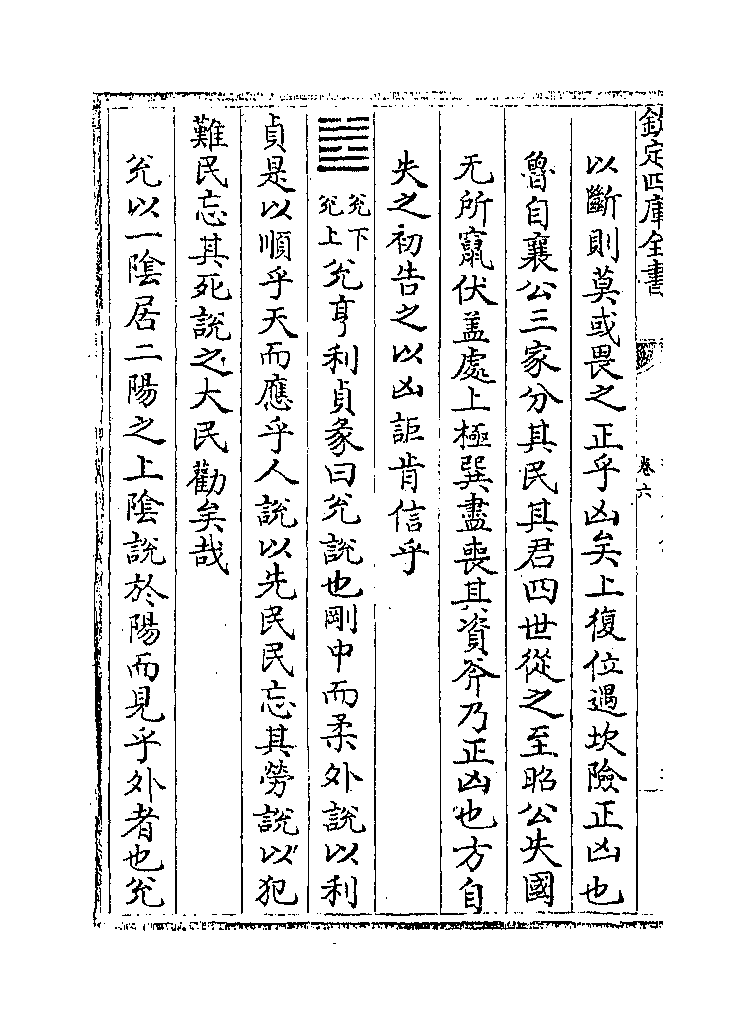 欽定四庫全書
卷六
以斷則莫或畏之正乎凶矣上復位遇坎險正凶也
魯自襄公三家分其民其君四世從之至昭公失國
无所竄伏盖處上極巽盡喪其資斧乃正凶也方自
失之初告之以凶詎肯信乎
䷹兊下兊上兊亨利貞彖曰兊說也剛中而柔外說以利
貞是以順乎天而應乎人說以先民民忘其勞說以犯
難民忘其死說之大民勸矣哉
兊以一陰居二陽之上陰說於陽而見乎外者也兊